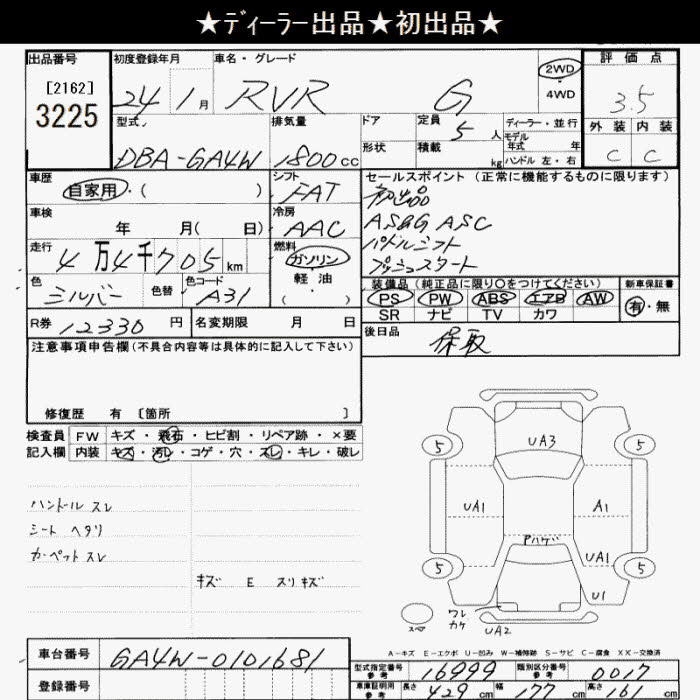 ★ディーラー出品★初出品★
出品番号 初度登録年月 車名・グレード 2WD 4WD 評価点
[2162]
3225 24 1月 RVR G 3.5
型式 排気量 ドア 定員 5人 ディーラー・並行 外装 内装
モデル年式 年
形状 積載 kg ハンドル 左・右
DBA-GA4W 1800cc C C
車歴 シフト セールスポイント (正常に機能するものに限ります)
自家用・( ) FAT 初出品
車検 冷房 AS&G ASC
年 月( 日) AAC パドルシフト
走行 燃料 プッシュスタート
4万4千705km ガソリン
軽油
色 色替 色コード 装備品 (純正品に限り○をつけてください) 新車保証書
シルバー A31 PS PW ABS エアB AW 有・無
SR ナビ TV カワ
R券 12330円 名変期限 月 日 後日品 保取
注意事項申告欄(不具合内容等は具体的に記入して下さい)
修復歴 有 [箇所 ]
検査員 FW キズ・飛石・ヒビ割・リペア跡・×要
記入欄 内装 キズ・汚レ・コゲ・穴・スレ・キレ・破レ
ハンドル スレ
シート ヘタリ
カーペット スレ
キズ E スリキズ
UA3
5 5
UA1 A1
Pハゲ UA1
5 5
U1
ワレ
カケ
スペア UA2
A-キズ E-エクボ U-凹み W-補修跡 S-サビ C-腐食 XX-交換済
車台番号 GA4W-0101681
登録番号
型式指定番号 参考 16999 類別区分番号 参考 0017
車庫証明用 参考 長さ 429cm 幅 177cm 高さ 161cm